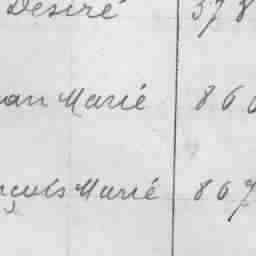 Desiré 378
an Marié 860
nçois Marié 867